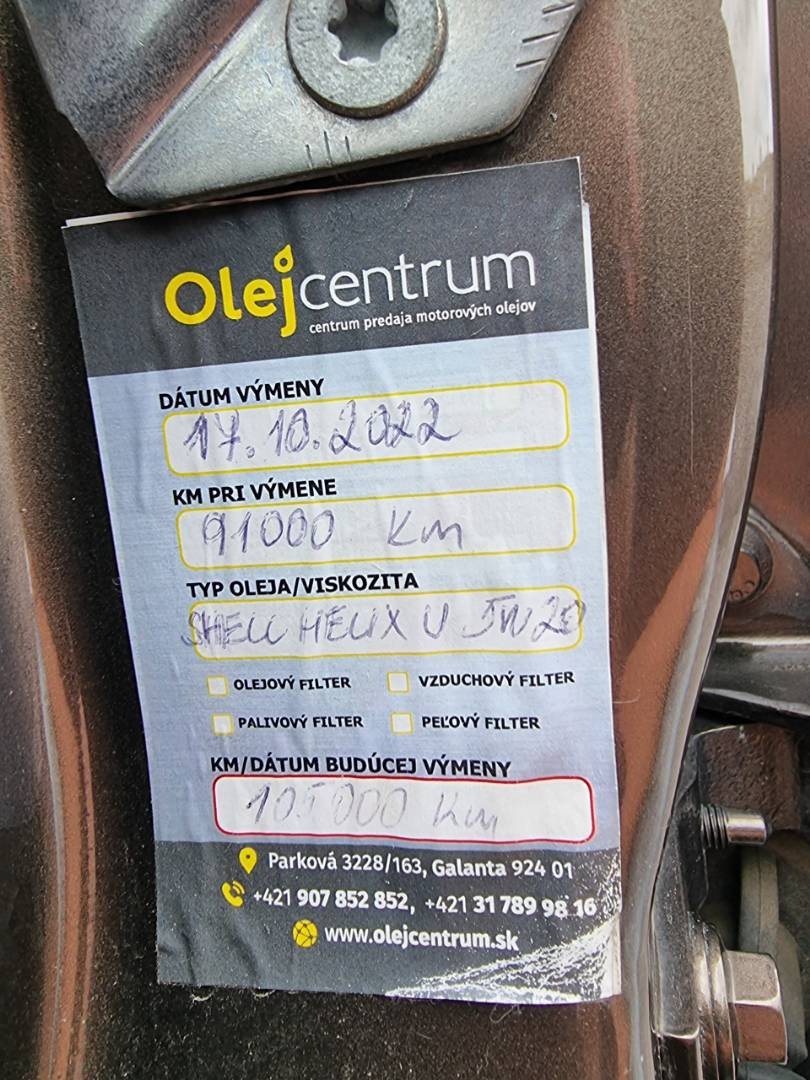 Olejcentrum
centrum predaja motorových olejov
DÁTUM VÝMENY
17.10.2022
KM PRI VÝMENE
91000 Km
TYP OLEJA/VISKOZITA
SHELL HELIX U 5W20
OLEJOVÝ FILTER VZDUCHOVÝ FILTER
PALIVOVÝ FILTER PEĽOVÝ FILTER
KM/DÁTUM BUDÚCEJ VÝMENY
105000 Km
Parková 3228/163, Galanta 924 01
+421 907 852 852, +421 31 789 98 16
www.olejcentrum.sk